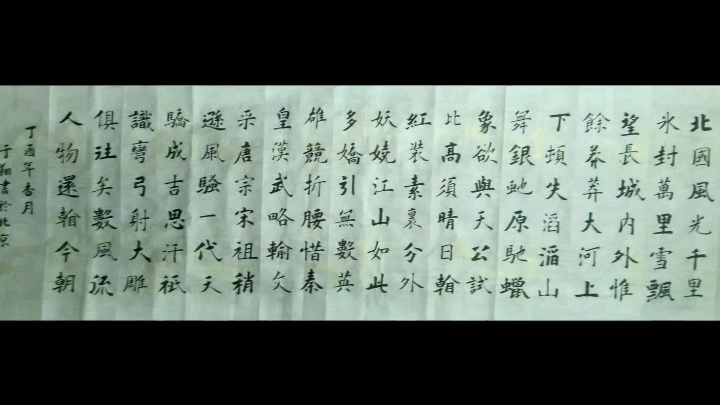 北國風光千里
氷封萬里雪飄
望長城内外惟
餘莽莽大河上
下頓失滔滔山
舞銀蛇原馳蠟
象欲與天公試
比高須晴日翰
紅裝素裹分外
妖嬈江山如此
多嬌引無數英
雄競折腰惜秦
皇漢武略輸文
采唐宗宋祖稍
遜風騷一代天
驕成吉思汗祇
識彎弓射大雕
俱往矣數風流
人物還翰今朝
丁酉年杏月
書於北京